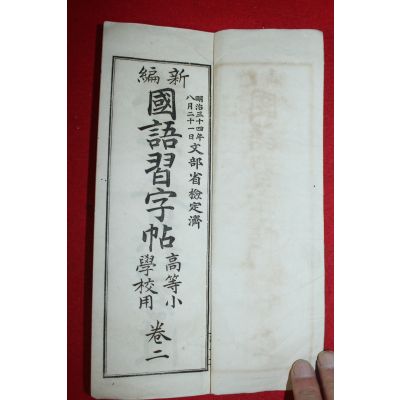 新編
明治三十四年
八月二十一日
文部省檢定濟
國語習字帖
高等小
學校用
卷二